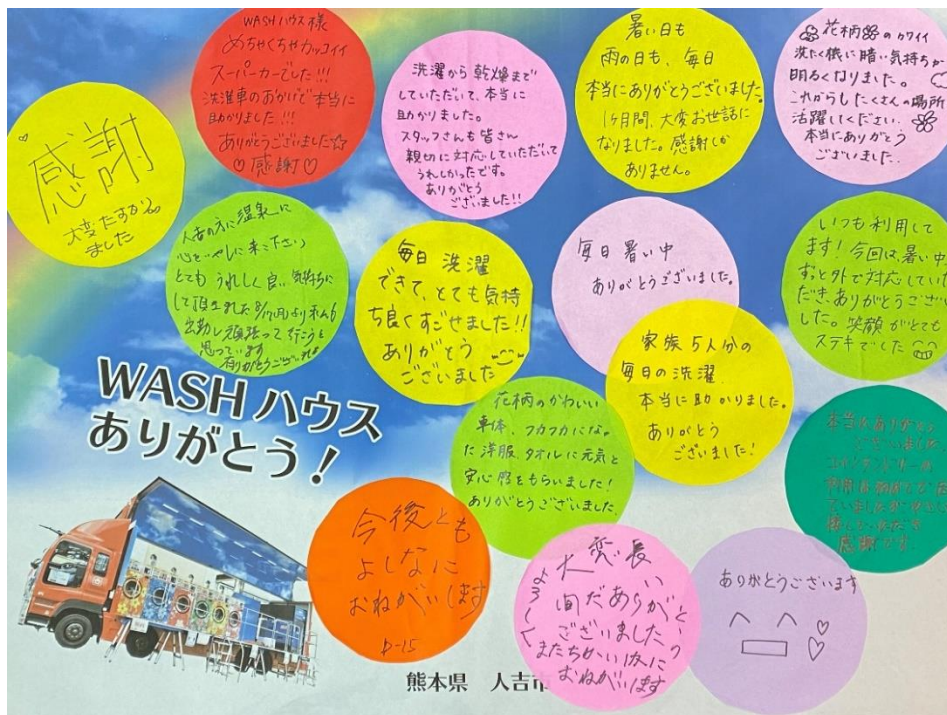 感謝
大変たすかり
ました
WASHハウス様
めちゃくちゃカッコイイ
スーパーカーでした!!!
洗濯車のおかげで本当に
助かりました!!!
ありがとうございました☆
♡感謝♡
洗濯から乾燥まで
していただいて、本当に
助かりました。
スタッフさんも皆さん
親切に対応していただいて
うれしかったです。
ありがとう
ございました!!
暑い日も
雨の日も、毎日
本当にありがとうございました。
1ヶ月間、大変お世話に
なりました。感謝しか
ありません。
花柄のカワイイ
洗たく機に暗い気持ちが
明るくなりました。
これからもたくさんの場所
活躍してください。
本当にありがとう
ございました。
人吉の方に温泉に
心をいやしに来て下さい
とてもうれしく良い気持ちに
して頂きました
出勤し頑張って行こうと
思っています
毎日 洗濯
できて、とても気持
ち良くすごせました!!
ありがとう
ございました
毎日暑い中
ありがとうございました。
いつも利用して
ます!今回は、暑い中
ずっと外で対応してい
だき、ありがとうござ
した。笑顔がとても
ステキでした
家族5人分の
毎日の洗濯
本当に助かりました。
ありがとう
ございました!
花柄のかわいい
車体、フカフカにな
た洋服、タオルに元気と
安心感をもらいました!
ありがとうございました
本当にありがとう
ございました
感謝です
WASHハウス
ありがとう!
今後とも
よしなに
おねがいします
D-15
大変長い
間だありがとう
ございました、
またちかい依に
おねがいします
よろしく
ありがとうございます
熊本県 人吉市